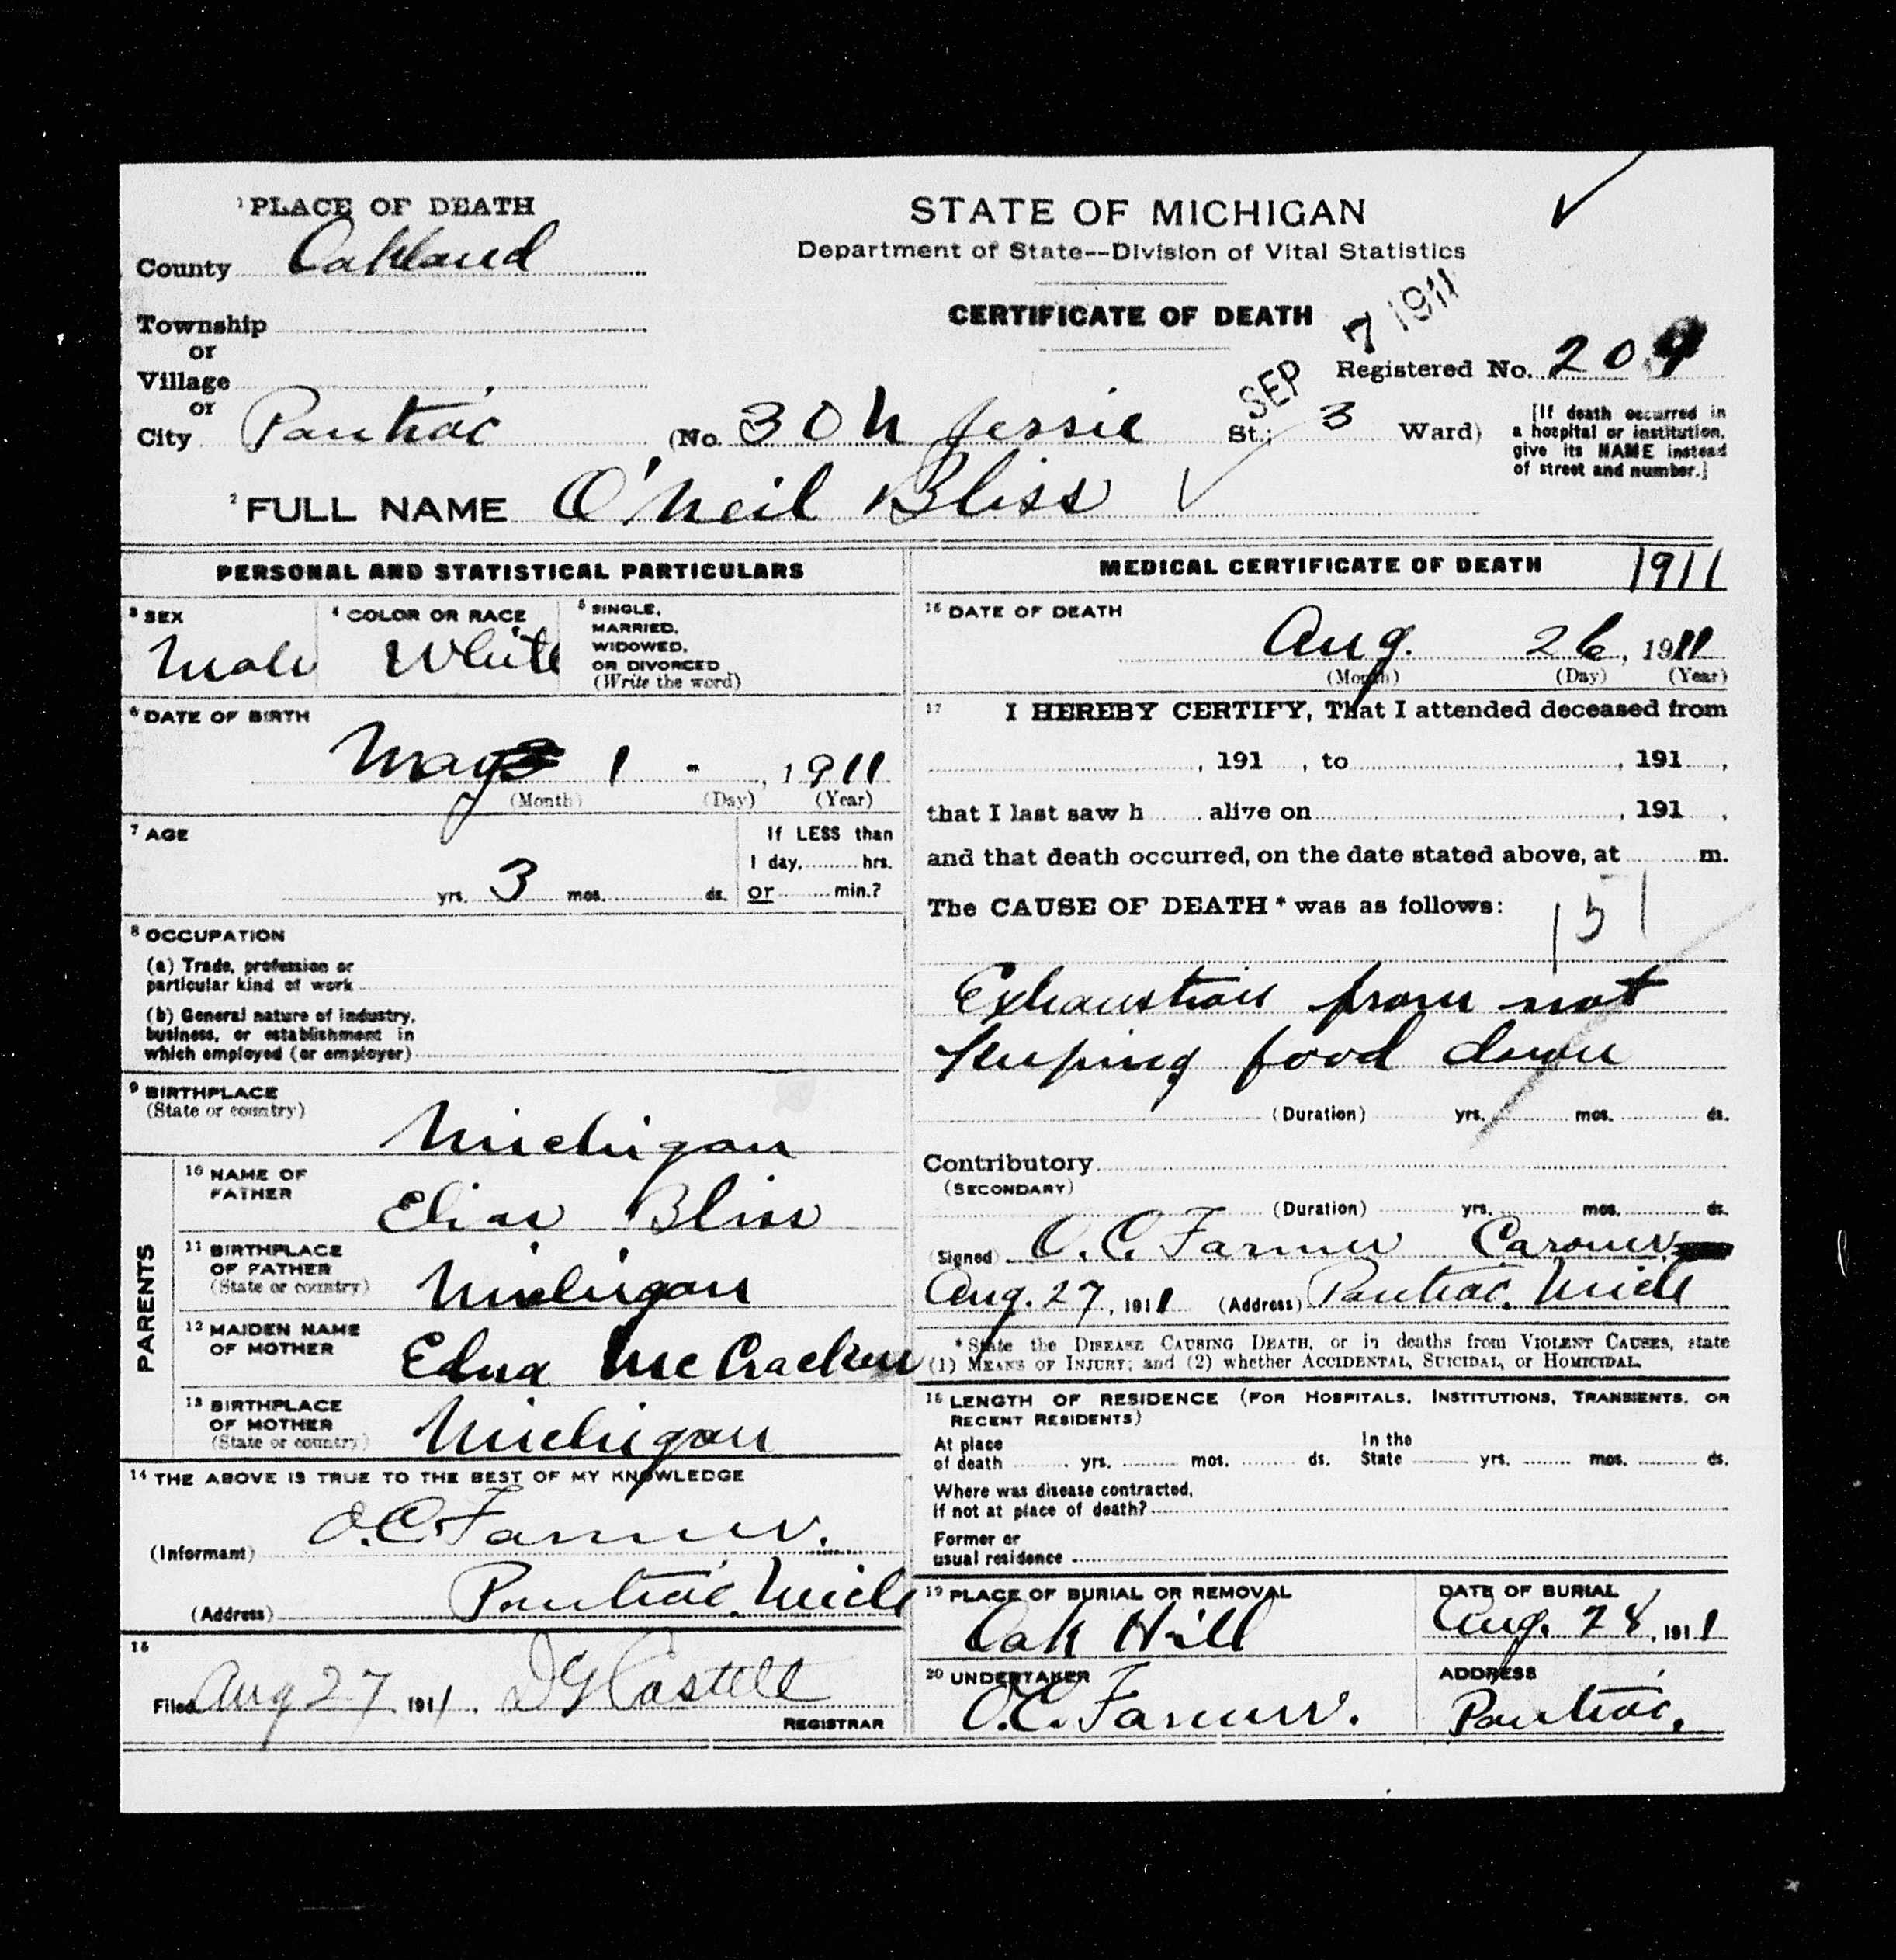 1 PLACE OF DEATH
County Oakland
Township
or
Village
or
City Pontiac
STATE OF MICHIGAN
Department of State--Division of Vital Statistics
CERTIFICATE OF DEATH
SEP 7 1911
Registered No. 209
(No. 30 N Jessie St.; 3 Ward)
[If death occurred in
a hospital or institution,
give its NAME instead
of street and number.]
2 FULL NAME O'Neil Bliss
PERSONAL AND STATISTICAL PARTICULARS
3 SEX
Male
4 COLOR OR RACE
White
5 SINGLE,
MARRIED,
WIDOWED,
OR DIVORCED
(Write the word)
6 DATE OF BIRTH
May 1 - , 1911
(Month) (Day) (Year)
7 AGE
yrs. 3 mos. ds.
If LESS than
1 day, hrs.
or min.?
8 OCCUPATION
(a) Trade, profession or
particular kind of work
(b) General nature of industry,
business, or establishment in
which employed (or employer)
9 BIRTHPLACE
(State or country)
Michigan
PARENTS
10 NAME OF
FATHER
Elias Bliss
11 BIRTHPLACE
OF FATHER
(State or country)
Michigan
12 MAIDEN NAME
OF MOTHER
Edna McCracken
13 BIRTHPLACE
OF MOTHER
(State or country)
Michigan
14 THE ABOVE IS TRUE TO THE BEST OF MY KNOWLEDGE
(Informant) O.C. Farmer.
(Address) Pontiac Mich
15
Filed Aug 27 1911. D G Castell
REGISTRAR
MEDICAL CERTIFICATE OF DEATH 1911
16 DATE OF DEATH
Aug. 26, 1911
(Month) (Day) (Year)
17 I HEREBY CERTIFY, That I attended deceased from
, 191 , to , 191 ,
that I last saw h alive on , 191 ,
and that death occurred, on the date stated above, at m.
The CAUSE OF DEATH* was as follows:
151
Exhaustion from not
keeping food down
(Duration) yrs. mos. ds.
Contributory
(SECONDARY)
(Duration) yrs. mos. ds.
(Signed) O.C. Farmer Coroner
Aug. 27, 1911 (Address) Pontiac, Mich
*State the DISEASE CAUSING DEATH, or in deaths from VIOLENT CAUSES, state
(1) MEANS OF INJURY; and (2) whether ACCIDENTAL, SUICIDAL, or HOMICIDAL.
18 LENGTH OF RESIDENCE (FOR HOSPITALS, INSTITUTIONS, TRANSIENTS, OR
RECENT RESIDENTS)
At place
of death yrs. mos. ds.
In the
State yrs. mos. ds.
Where was disease contracted,
if not at place of death?
Former or
usual residence
19 PLACE OF BURIAL OR REMOVAL
Oak Hill
DATE OF BURIAL
Aug. 28, 1911
20 UNDERTAKER
O.C. Farmer.
ADDRESS
Pontiac.